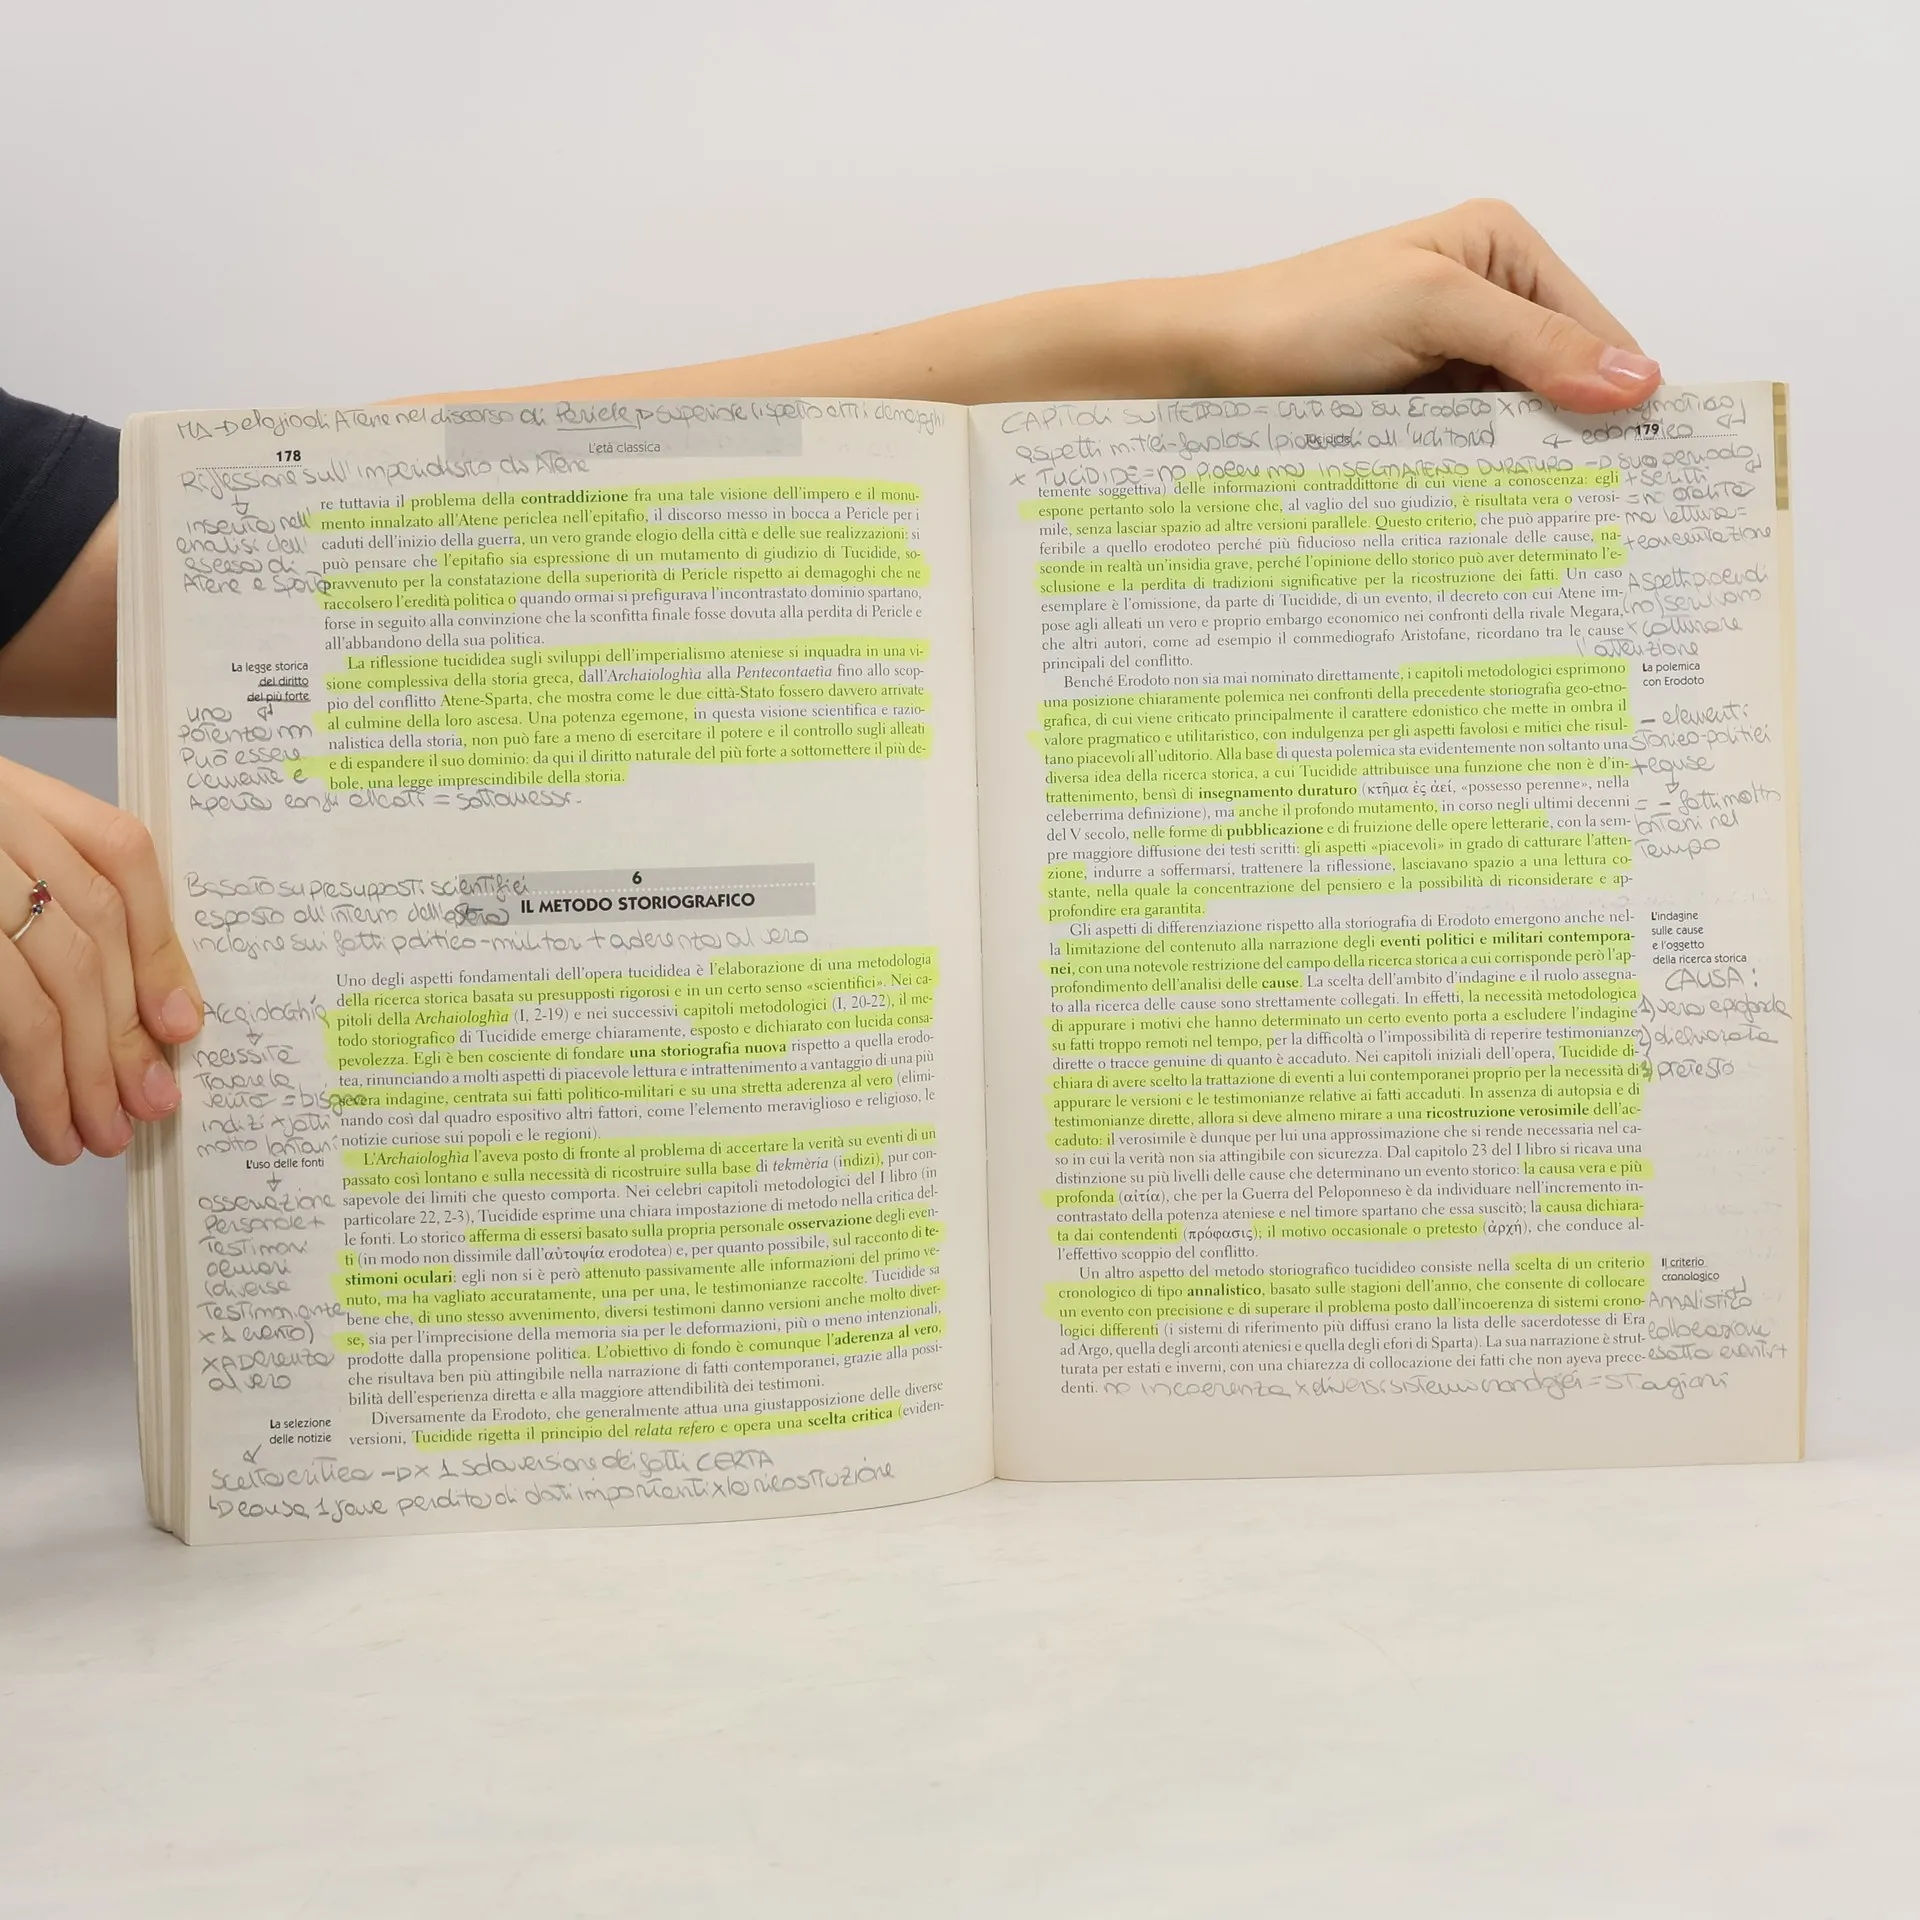 MA → elogio di Atene nel discorso di Pericle → superiore rispetto altri demagoghi
178
L'età classica
Riflessione sull'imperialismo di Atene
inserita nell'
analisi dell'
ascesa di
Atene e Sparta
re tuttavia il problema della contraddizione fra una tale visione dell'impero e il monu-
mento innalzato all'Atene periclea nell'epitafio, il discorso messo in bocca a Pericle per i
caduti dell'inizio della guerra, un vero grande elogio della città e delle sue realizzazioni: si
può pensare che l'epitafio sia espressione di un mutamento di giudizio di Tucidide, so-
pravvenuto per la constatazione della superiorità di Pericle rispetto ai demagoghi che ne
raccolsero l'eredità politica o quando ormai si prefigurava l'incontrastato dominio spartano,
forse in seguito alla convinzione che la sconfitta finale fosse dovuta alla perdita di Pericle e
all'abbandono della sua politica.
La legge storica
del diritto
del più forte
una
potenza non
può essere
clemente e
aperta con gli alleati = sottomessi.
La riflessione tucididea sugli sviluppi dell'imperialismo ateniese si inquadra in una vi-
sione complessiva della storia greca, dall'Archaiologhìa alla Pentecontaetìa fino allo scop-
pio del conflitto Atene-Sparta, che mostra come le due città-Stato fossero davvero arrivate
al culmine della loro ascesa. Una potenza egemone, in questa visione scientifica e razio-
nalistica della storia, non può fare a meno di esercitare il potere e il controllo sugli alleati
e di espandere il suo dominio: da qui il diritto naturale del più forte a sottomettere il più de-
bole, una legge imprescindibile della storia.
6
IL METODO STORIOGRAFICO
Basato su presupposti scientifici
esposto all'interno dell'opera
indagine sui fatti politico-militari + aderenza al vero
Uno degli aspetti fondamentali dell'opera tucididea è l'elaborazione di una metodologia
della ricerca storica basata su presupposti rigorosi e in un certo senso «scientifici». Nei ca-
pitoli della Archaiologhìa (I, 2-19) e nei successivi capitoli metodologici (I, 20-22), il me-
todo storiografico di Tucidide emerge chiaramente, esposto e dichiarato con lucida consa-
pevolezza. Egli è ben cosciente di fondare una storiografia nuova rispetto a quella erodo-
tea, rinunciando a molti aspetti di piacevole lettura e intrattenimento a vantaggio di una più
severa indagine, centrata sui fatti politico-militari e su una stretta aderenza al vero (elimi-
nando così dal quadro espositivo altri fattori, come l'elemento meraviglioso e religioso, le
notizie curiose sui popoli e le regioni).
necessità
trovare la
indizi x fatti
molto lontani
L'uso delle fonti
osservazione
personale +
testimoni
oculari
(diverse
testimonianze
x 1 evento)
x ADERENZA
al vero
L'Archaiologhìa l'aveva posto di fronte al problema di accertare la verità su eventi di un
passato così lontano e sulla necessità di ricostruire sulla base di tekmèria (indizi), pur con-
sapevole dei limiti che questo comporta. Nei celebri capitoli metodologici del I libro (in
particolare 22, 2-3), Tucidide esprime una chiara impostazione di metodo nella critica del-
le fonti. Lo storico afferma di essersi basato sulla propria personale osservazione degli even-
ti (in modo non dissimile dall'αὐτοψία erodotea) e, per quanto possibile, sul racconto di te-
stimoni oculari: egli non si è però attenuto passivamente alle informazioni del primo ve-
nuto, ma ha vagliato accuratamente, una per una, le testimonianze raccolte. Tucidide sa
bene che, di uno stesso avvenimento, diversi testimoni danno versioni anche molto diver-
se, sia per l'imprecisione della memoria sia per le deformazioni, più o meno intenzionali,
prodotte dalla propensione politica. L'obiettivo di fondo è comunque l'aderenza al vero,
che risultava ben più attingibile nella narrazione di fatti contemporanei, grazie alla possi-
bilità dell'esperienza diretta e alla maggiore attendibilità dei testimoni.
La selezione
delle notizie
Diversamente da Erodoto, che generalmente attua una giustapposizione delle diverse
versioni, Tucidide rigetta il principio del relata refero e opera una scelta critica (eviden-
scelta critica → x 1 sola versione dei fatti CERTA
↳ causa 1 grave perdita di dati importanti x la ricostruzione
CAPITOLI SUL METODO = critica su Erodoto x no
aspetti mitici-favolosi (piacevoli all'uditorio)
Tucidide
179
x TUCIDIDE = no piacere ma INSEGNAMENTO DURATURO → suo periodo
+ scritti
= no oralità
ma lettura =
+ concentrazione
Aspetti piacevoli
(no) servivano
x catturare
l'attenzione
temente soggettiva) delle informazioni contraddittorie di cui viene a conoscenza: egli
espone pertanto solo la versione che, al vaglio del suo giudizio, è risultata vera o verosi-
mile, senza lasciar spazio ad altre versioni parallele. Questo criterio, che può apparire pre-
feribile a quello erodoteo perché più fiducioso nella critica razionale delle cause, na-
sconde in realtà un'insidia grave, perché l'opinione dello storico può aver determinato l'e-
sclusione e la perdita di tradizioni significative per la ricostruzione dei fatti. Un caso
esemplare è l'omissione, da parte di Tucidide, di un evento, il decreto con cui Atene im-
pose agli alleati un vero e proprio embargo economico nei confronti della rivale Megara,
che altri autori, come ad esempio il commediografo Aristofane, ricordano tra le cause
principali del conflitto.
La polemica
con Erodoto
- elementi
storico-politici
+ cause
= - fatti molto
lontani nel
tempo
Benché Erodoto non sia mai nominato direttamente, i capitoli metodologici esprimono
una posizione chiaramente polemica nei confronti della precedente storiografia geo-etno-
grafica, di cui viene criticato principalmente il carattere edonistico che mette in ombra il
valore pragmatico e utilitaristico, con indulgenza per gli aspetti favolosi e mitici che risul-
tano piacevoli all'uditorio. Alla base di questa polemica sta evidentemente non soltanto una
diversa idea della ricerca storica, a cui Tucidide attribuisce una funzione che non è d'in-
trattenimento, bensì di insegnamento duraturo (κτῆμα ἐς ἀεί, «possesso perenne», nella
celeberrima definizione), ma anche il profondo mutamento, in corso negli ultimi decenni
del V secolo, nelle forme di pubblicazione e di fruizione delle opere letterarie, con la sem-
pre maggiore diffusione dei testi scritti: gli aspetti «piacevoli» in grado di catturare l'atten-
zione, indurre a soffermarsi, trattenere la riflessione, lasciavano spazio a una lettura co-
stante, nella quale la concentrazione del pensiero e la possibilità di riconsiderare e ap-
profondire era garantita.
L'indagine
sulle cause
e l'oggetto
della ricerca storica
CAUSA:
1) vera e profonda
2) dichiarata
3) pretesto
Gli aspetti di differenziazione rispetto alla storiografia di Erodoto emergono anche nel-
la limitazione del contenuto alla narrazione degli eventi politici e militari contempora-
nei, con una notevole restrizione del campo della ricerca storica a cui corrisponde però l'ap-
profondimento dell'analisi delle cause. La scelta dell'ambito d'indagine e il ruolo assegna-
to alla ricerca delle cause sono strettamente collegati. In effetti, la necessità metodologica
di appurare i motivi che hanno determinato un certo evento porta a escludere l'indagine
su fatti troppo remoti nel tempo, per la difficoltà o l'impossibilità di reperire testimonianze
dirette o tracce genuine di quanto è accaduto. Nei capitoli iniziali dell'opera, Tucidide di-
chiara di avere scelto la trattazione di eventi a lui contemporanei proprio per la necessità di
appurare le versioni e le testimonianze relative ai fatti accaduti. In assenza di autopsia e di
testimonianze dirette, allora si deve almeno mirare a una ricostruzione verosimile dell'ac-
caduto: il verosimile è dunque per lui una approssimazione che si rende necessaria nel ca-
so in cui la verità non sia attingibile con sicurezza. Dal capitolo 23 del I libro si ricava una
distinzione su più livelli delle cause che determinano un evento storico: la causa vera e più
profonda (αἰτία), che per la Guerra del Peloponneso è da individuare nell'incremento in-
contrastato della potenza ateniese e nel timore spartano che essa suscitò; la causa dichiara-
ta dai contendenti (πρόφασις); il motivo occasionale o pretesto (ἀρχή), che conduce al-
l'effettivo scoppio del conflitto.
Il criterio
cronologico
Annalistico
collocazione
esatta eventi +
Un altro aspetto del metodo storiografico tucidideo consiste nella scelta di un criterio
cronologico di tipo annalistico, basato sulle stagioni dell'anno, che consente di collocare
un evento con precisione e di superare il problema posto dall'incoerenza di sistemi crono-
logici differenti (i sistemi di riferimento più diffusi erano la lista delle sacerdotesse di Era
ad Argo, quella degli arconti ateniesi e quella degli efori di Sparta). La sua narrazione è strut-
turata per estati e inverni, con una chiarezza di collocazione dei fatti che non aveva prece-
denti. no incoerenza x diversi sistemi cronologici = stagioni